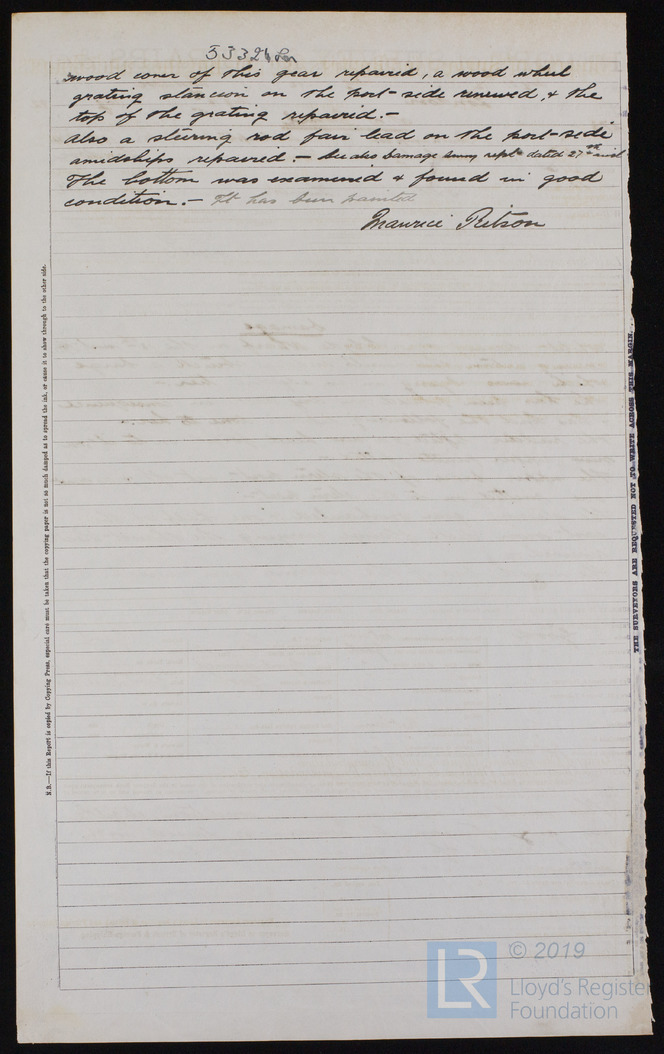 53326 Lon
wood cover of this gear repaired, a wood wheel
grating stancion on the port-side renewed, & the
top of the grating repaired.—
Also a steering rod fair lead on the port-side
amidships repaired.— See also Damage Survey rept dated 27th inst
The bottom was examined & found in good
condition.— It has been painted
Maurice Ritson
N.B.—If this Report is copied by Copying Press, especial care must be taken that the copying paper is not so much damped as to spread the ink, or cause it to show through to the other side.
THE SURVEYORS ARE REQUESTED NOT TO WRITE ACROSS THIS MARGIN.
LR
© 2019
Lloyd's Register
Foundation